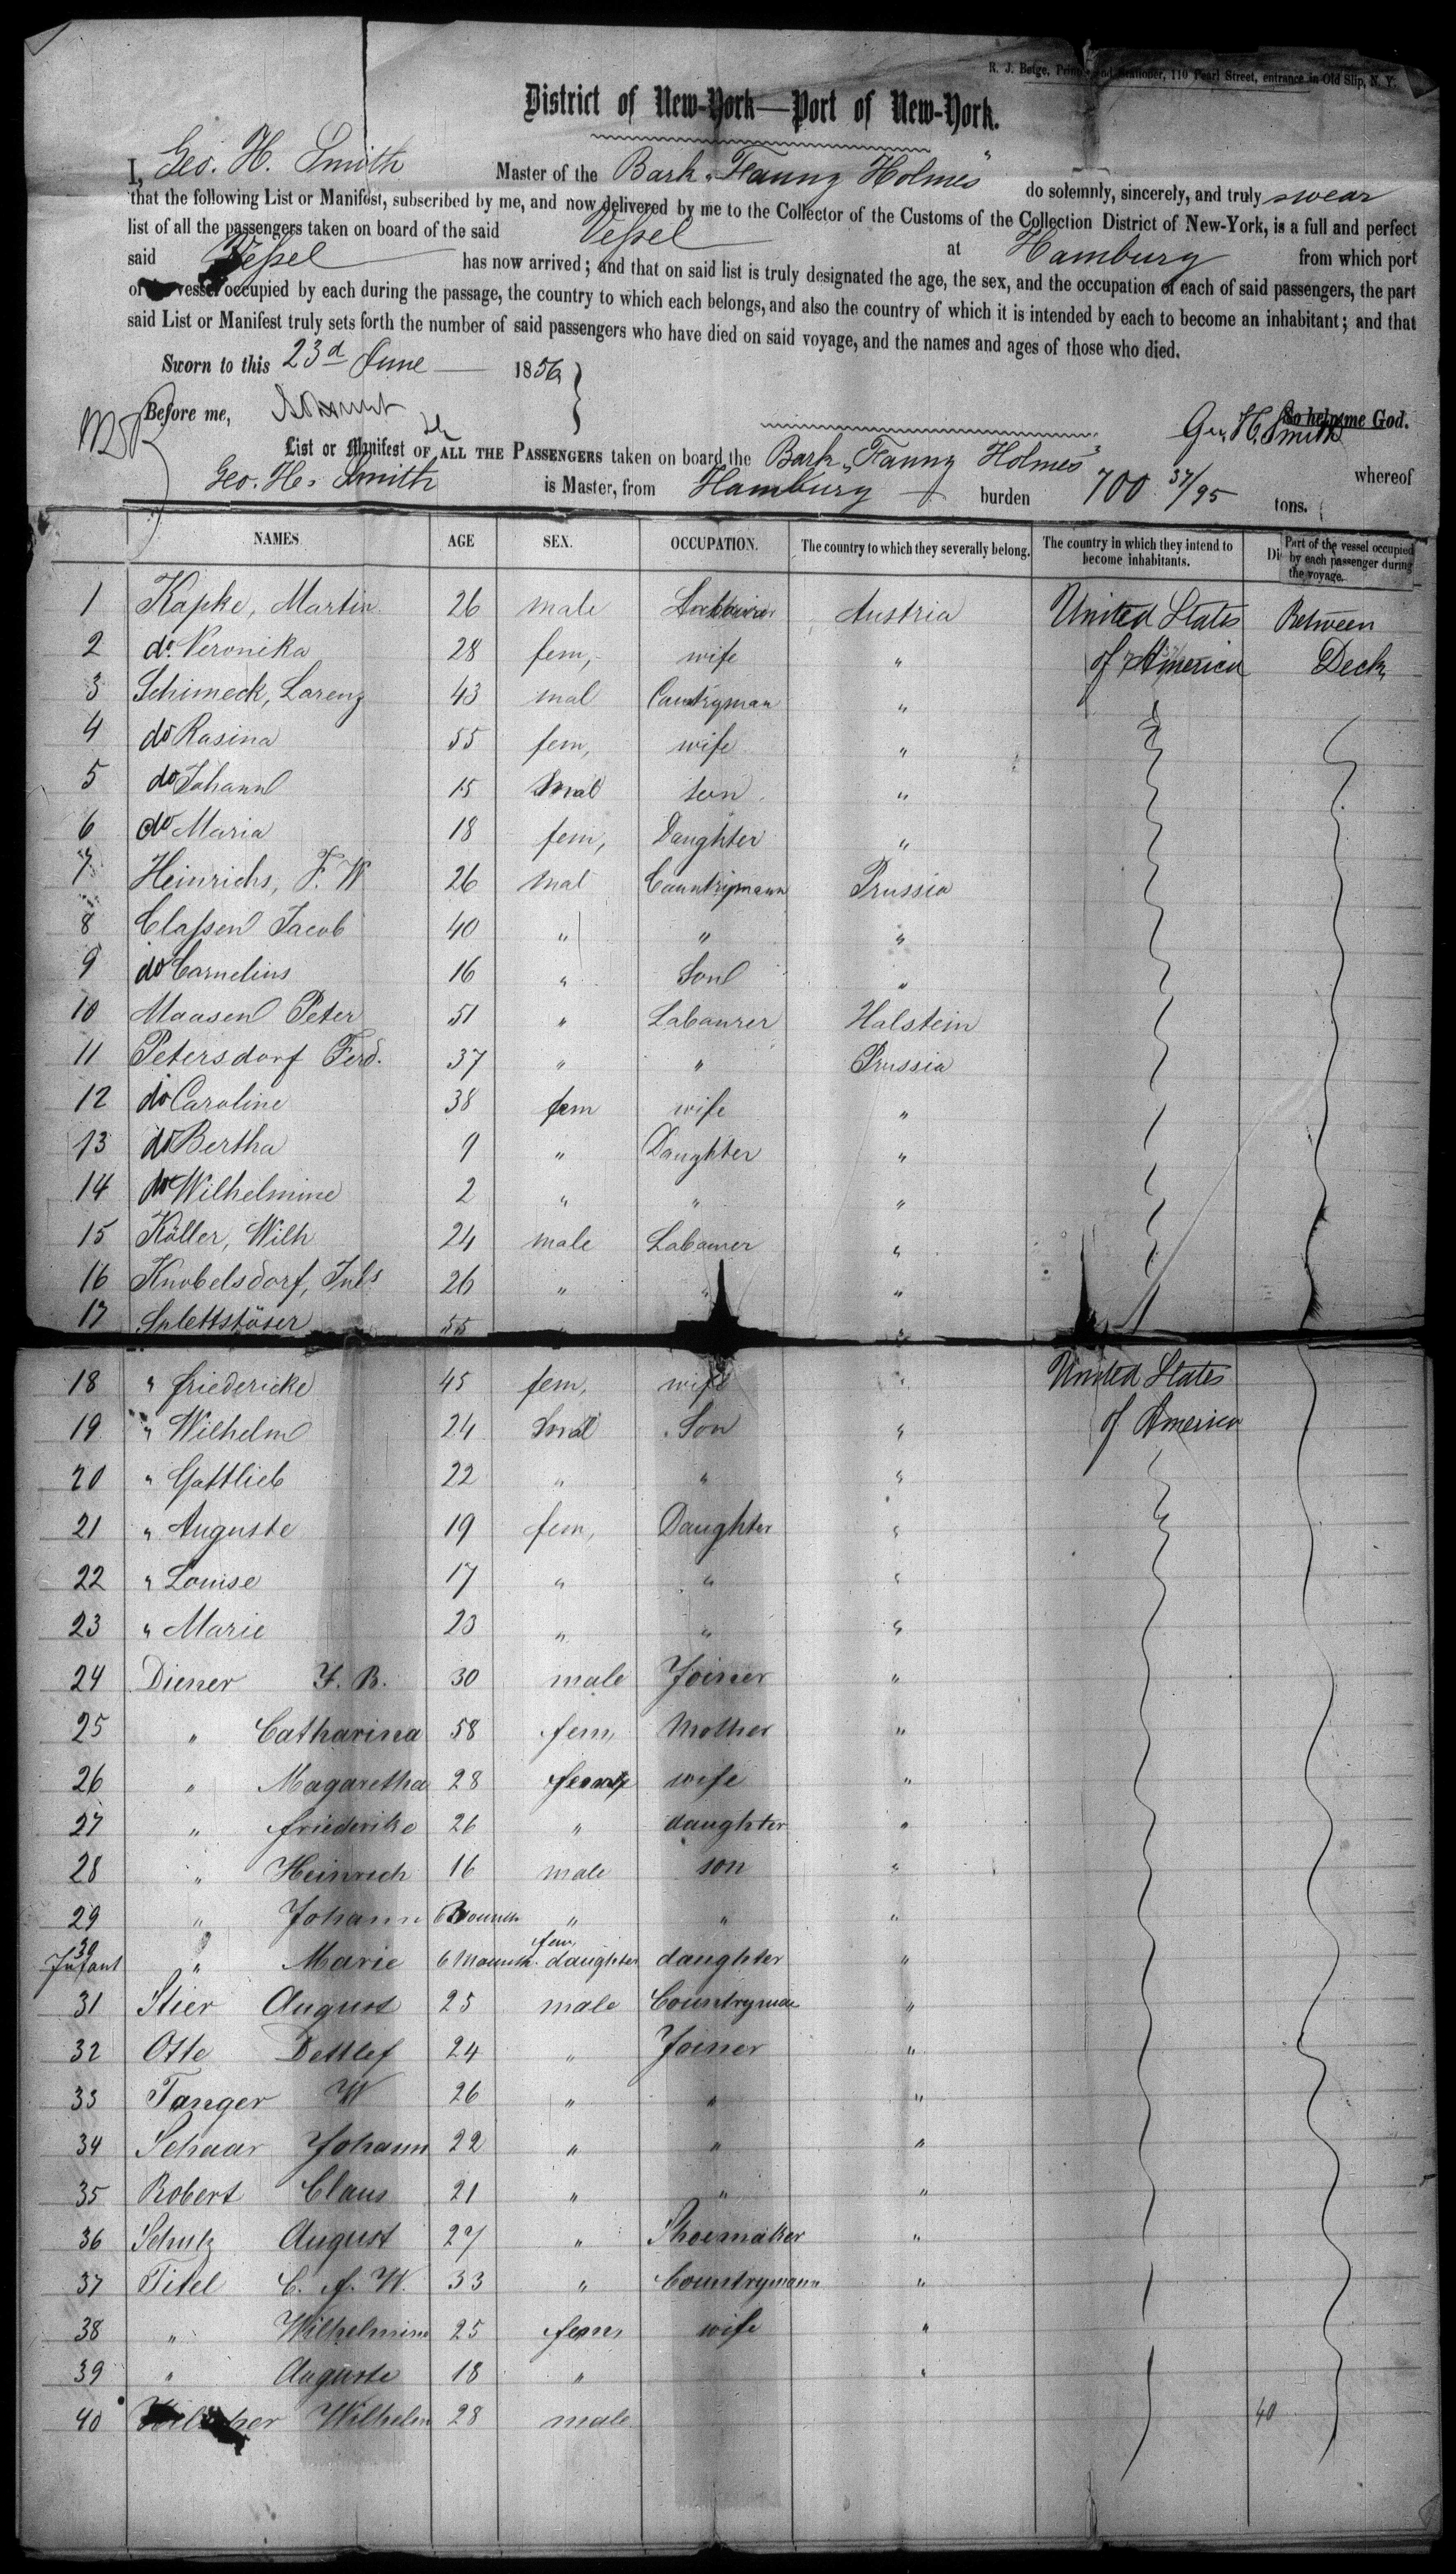 R. J. Betge, Stationer, 110 Pearl Street, entrance in Old Slip, N. Y.
District of New-York—Port of New-York.
I, Geo. H. Smith Master of the Bark "Fanny Holmes" do solemnly, sincerely, and truly swear
that the following List or Manifest, subscribed by me, and now delivered by me to the Collector of the Customs of the Collection District of New-York, is a full and perfect
list of all the passengers taken on board of the said Vessel at Hamburg from which port
said Vessel has now arrived; and that on said list is truly designated the age, the sex, and the occupation of each of said passengers, the part
of vessel occupied by each during the passage, the country to which each belongs, and also the country of which it is intended by each to become an inhabitant; and that
said List or Manifest truly sets forth the number of said passengers who have died on said voyage, and the names and ages of those who died.
Sworn to this 23d June 1856
So help me God.
Before me, Geo. H. Smith
List or Manifest OF ALL THE PASSENGERS taken on board the Bark "Fanny Holmes" whereof
Geo. H. Smith is Master, from Hamburg burden 700 37/95 tons.
NAMES AGE SEX. OCCUPATION. The country to which they severally belong. The country in which they intend to become inhabitants. Part of the vessel occupied by each passenger during the voyage.
1 Kapke, Martin 26 male Austria United States Between
2 do. Veronika 28 fem, wife " of America Deck
3 Schimeck, Lorenz 43 mal Cauntryman "
4 do Rasina 55 fem, wife "
5 do Johann 15 mal son "
6 do Maria 18 fem, Daughter "
7 Heinrichs, F. W 26 mal Cauntrymann Prussia
8 Classen Jacob 40 " " "
9 do Cornelius 16 " Son "
10 Maasen Peter 51 " Labaurer Halstein
11 Petersdorf Ferd. 37 " " Prussia
12 do Caroline 38 fem wife "
13 do Bertha 9 " Daughter "
14 do Wilhelmine 2 " " "
15 Köller, Wilh 24 male Labaurer "
16 Knobelsdorf, Juls 26 " " "
17 Splettstöser 55 "
18 " Friedericke 45 fem, wife " United States
19 " Wilhelm 24 mal Son " of America
20 " Gottlieb 22 " " "
21 " Auguste 19 fem, Daughter "
22 " Louise 17 " " "
23 " Marie 20 " " "
24 Diener J. B. 30 male Joiner "
25 " Catharina 58 fem, Mother "
26 " Magaretha 28 wife "
27 " Friederike 26 " daughter "
28 " Heinrich 16 male son "
29 " Johann " " "
30 Infant " Marie 6 Mounth fem, daughter daughter "
31 Stier August 25 male Countryman "
32 Otte Detlef 24 " Joiner "
33 Tanger W 26 " " "
34 Schaar Johann 22 " " "
35 Robert Claus 21 " " "
36 Schulz August 27 " Shoemaker "
37 Titel C. F. W. 33 " Countrymann "
38 " Wilhelmine 25 fem, wife "
39 " Auguste 18 " "
40 Wilhelm 28 male 40